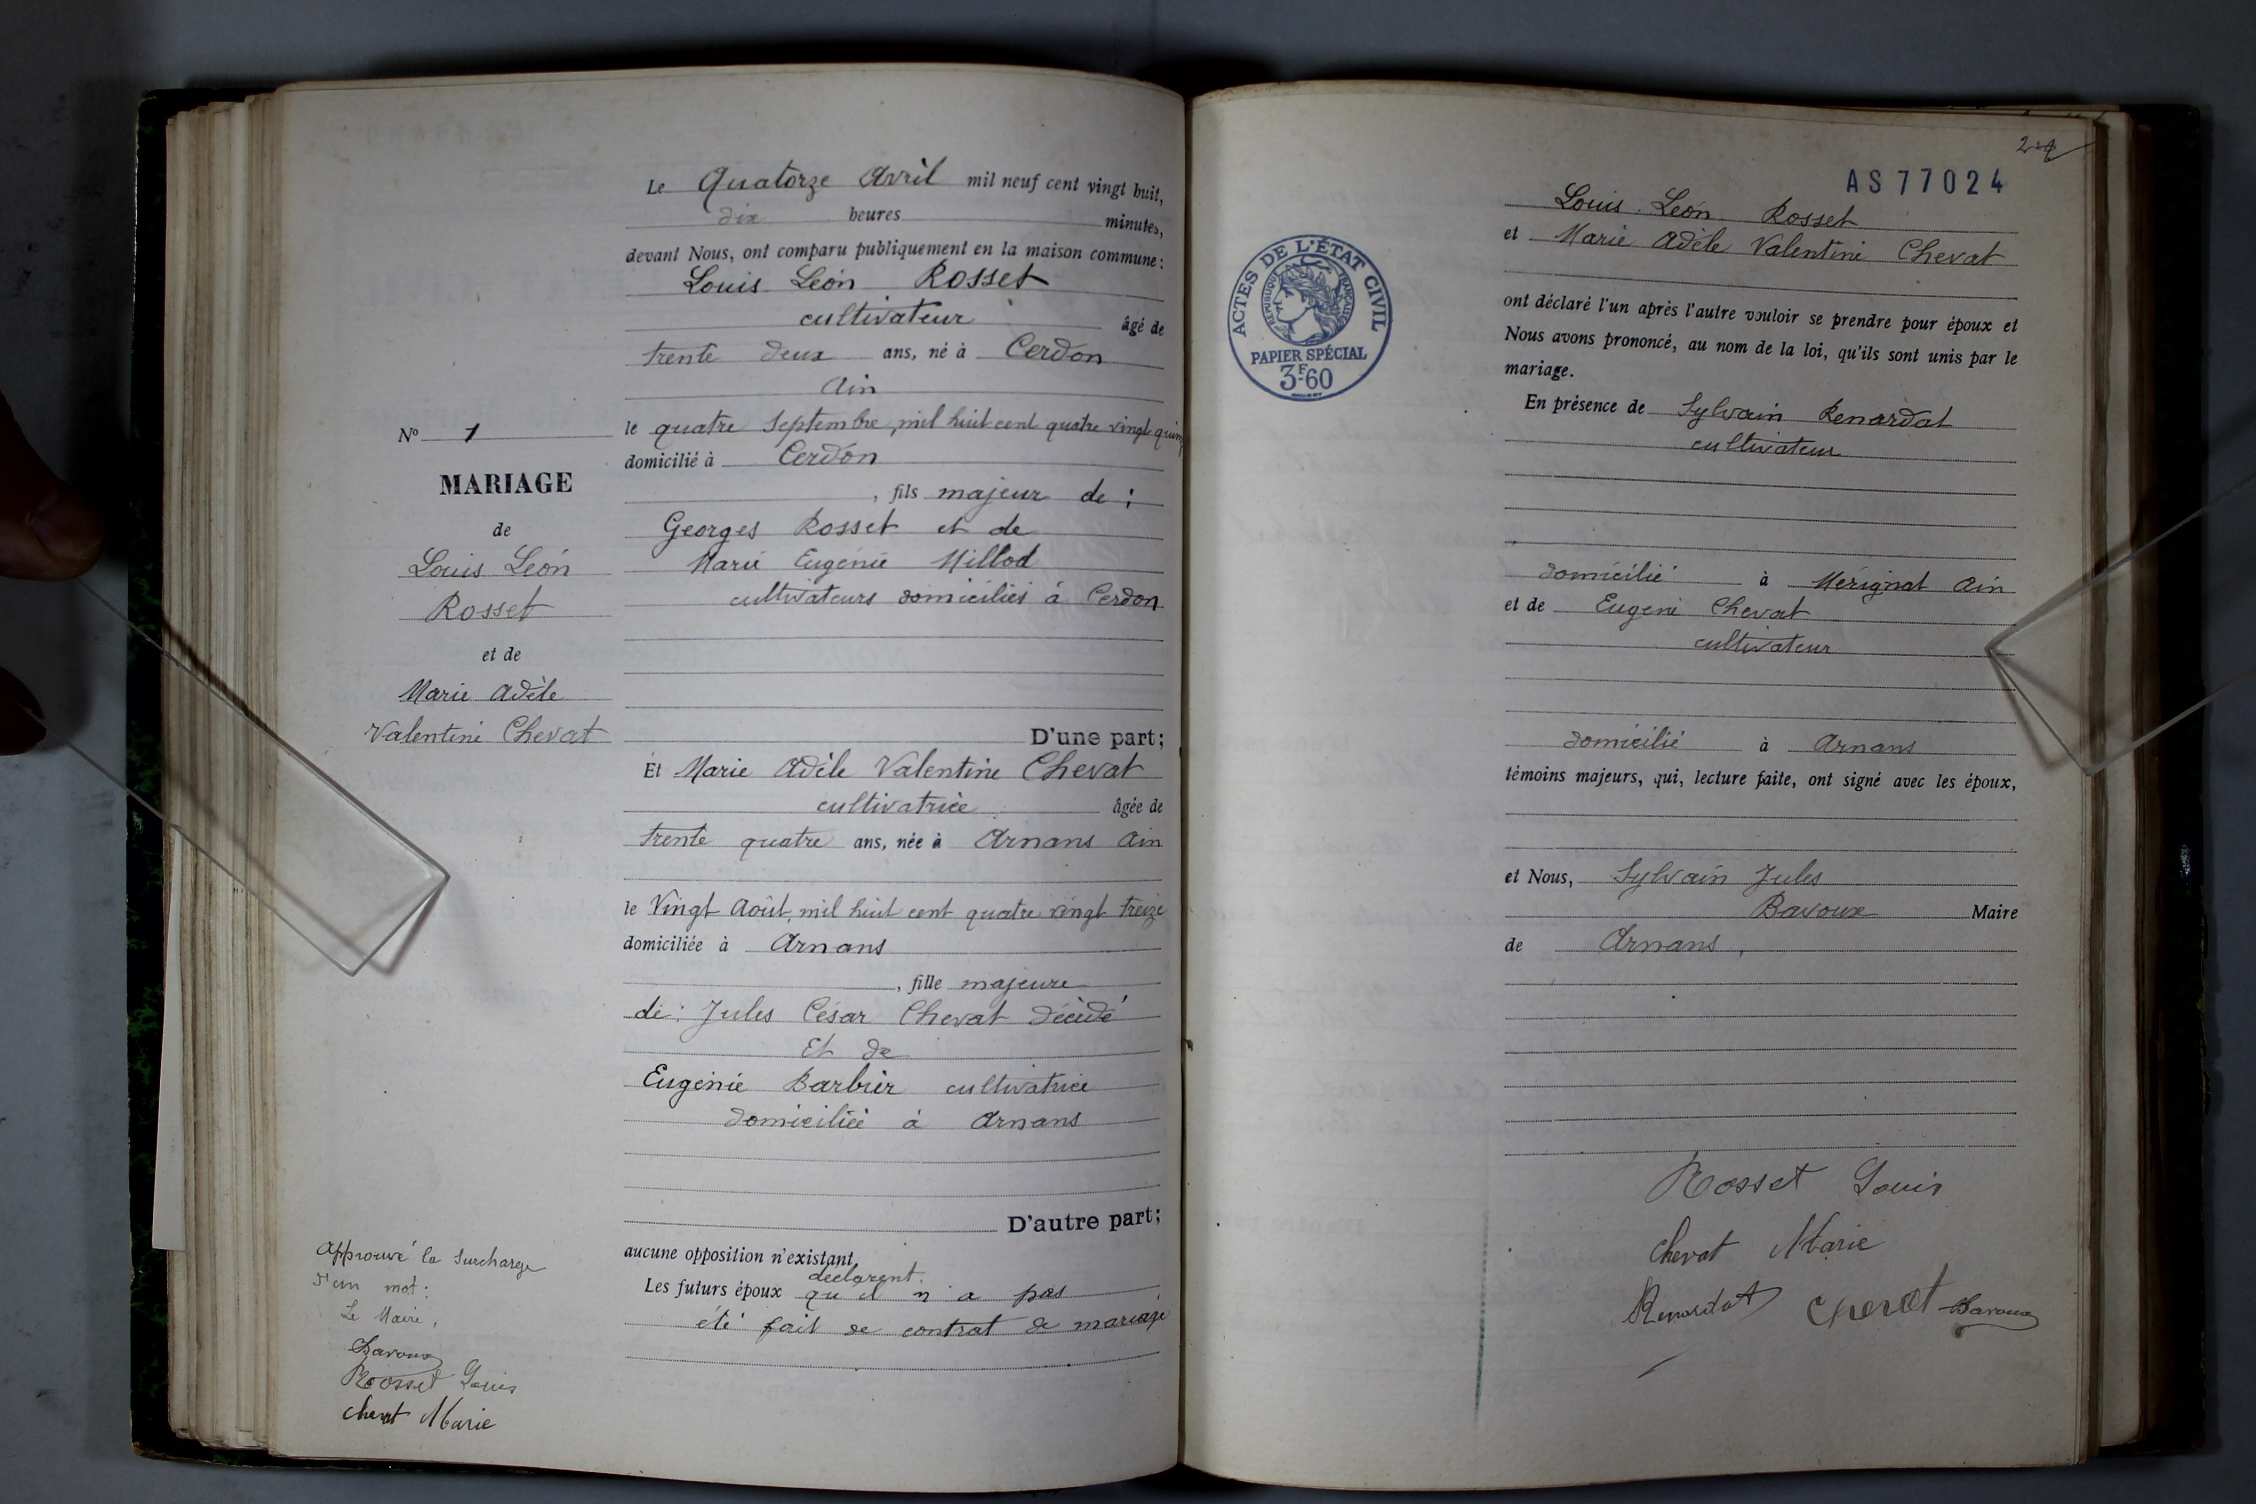 Le Quatorze Avril mil neuf cent vingt huit,
dix heures minutes,
devant Nous, ont comparu publiquement en la maison commune :
Louis Léon Rosset
cultivateur âgé de
trente deux ans, né à Cerdon
Ain
le quatre Septembre, mil huit cent quatre vingt quinze
domicilié à Cerdon
, fils majeur de :
Georges Rosset et de
Marie Eugénie Millod
cultivateurs domiciliés à Cerdon
D'une part ;
Et Marie Adèle Valentine Chevat
cultivatrice âgée de
trente quatre ans, née à Arnans Ain
le Vingt Août, mil huit cent quatre vingt treize
domiciliée à Arnans
, fille majeure
de : Jules César Chevat décédé
Et de
Eugénie Barbier cultivatrice
domiciliée à Arnans
D'autre part ;
aucune opposition n'existant
déclarent
Les futurs époux qu'il n'a pas
été fait de contrat de mariage
No 1
MARIAGE
de
Louis Léon
Rosset
et de
Marie Adèle
Valentine Chevat
Approuvé la surcharge
d'un mot :
Le Maire,
Bavoux
Rosset Louis
Chevat Marie
24
AS77024
Louis Léon Rosset
et Marie Adèle Valentine Chevat
ont déclaré l'un après l'autre vouloir se prendre pour époux et
Nous avons prononcé, au nom de la loi, qu'ils sont unis par le
mariage.
En présence de Sylvain Renardat
cultivateur
domicilié à Mérignat Ain
et de Eugène Chevat
cultivateur
domicilié à Arnans
témoins majeurs, qui, lecture faite, ont signé avec les époux,
et Nous, Sylvain Jules
Bavoux Maire
de Arnans,
Rosset Louis
Chevat Marie
Renardat Chevat Bavoux
ACTES DE L'ÉTAT CIVIL
RÉPUBLIQUE FRANÇAISE
PAPIER SPÉCIAL
3F60